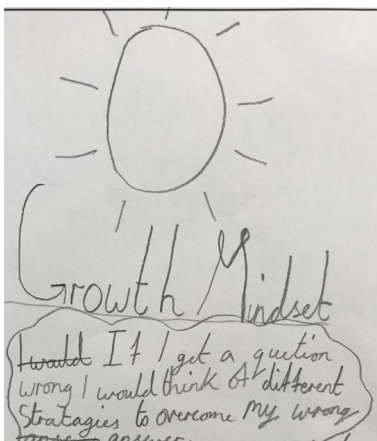 Growth Mindset
I would If I get a quetion
wrong I would think of different
stratagies to overcome my wrong
answer.